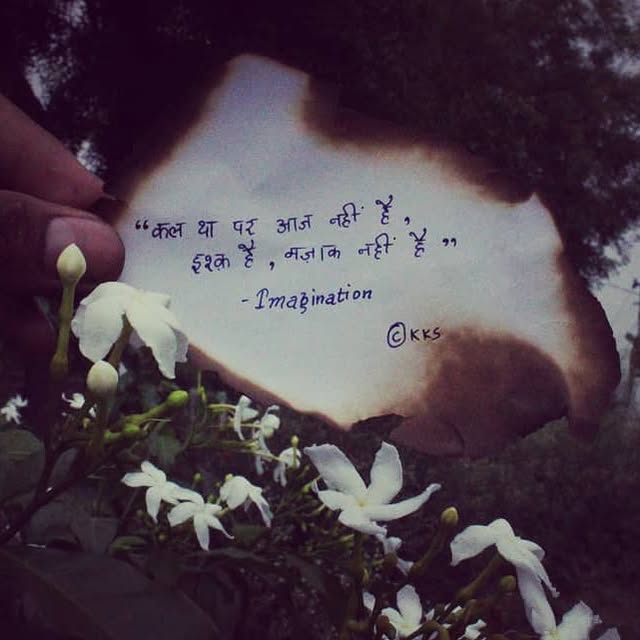 “कल था पर आज नहीं है,
इश्क़ है, मज़ाक नहीं है”
-Imagination
©KKS